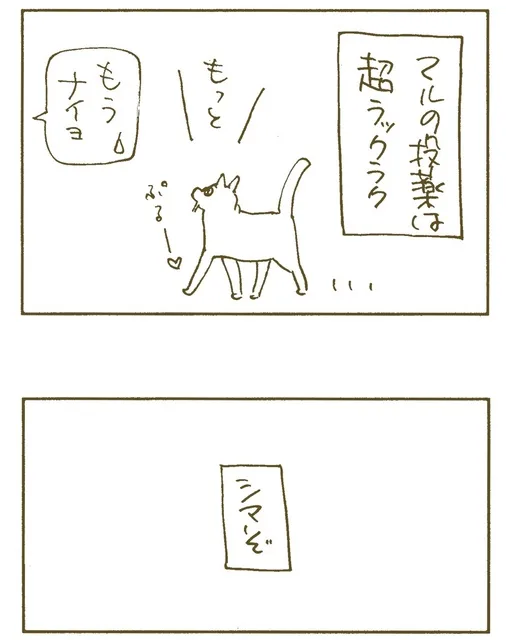 マルの投薬は
超ラックラク
もっと
ぷるー♡
もう
ナイヨ
...
シマぞ